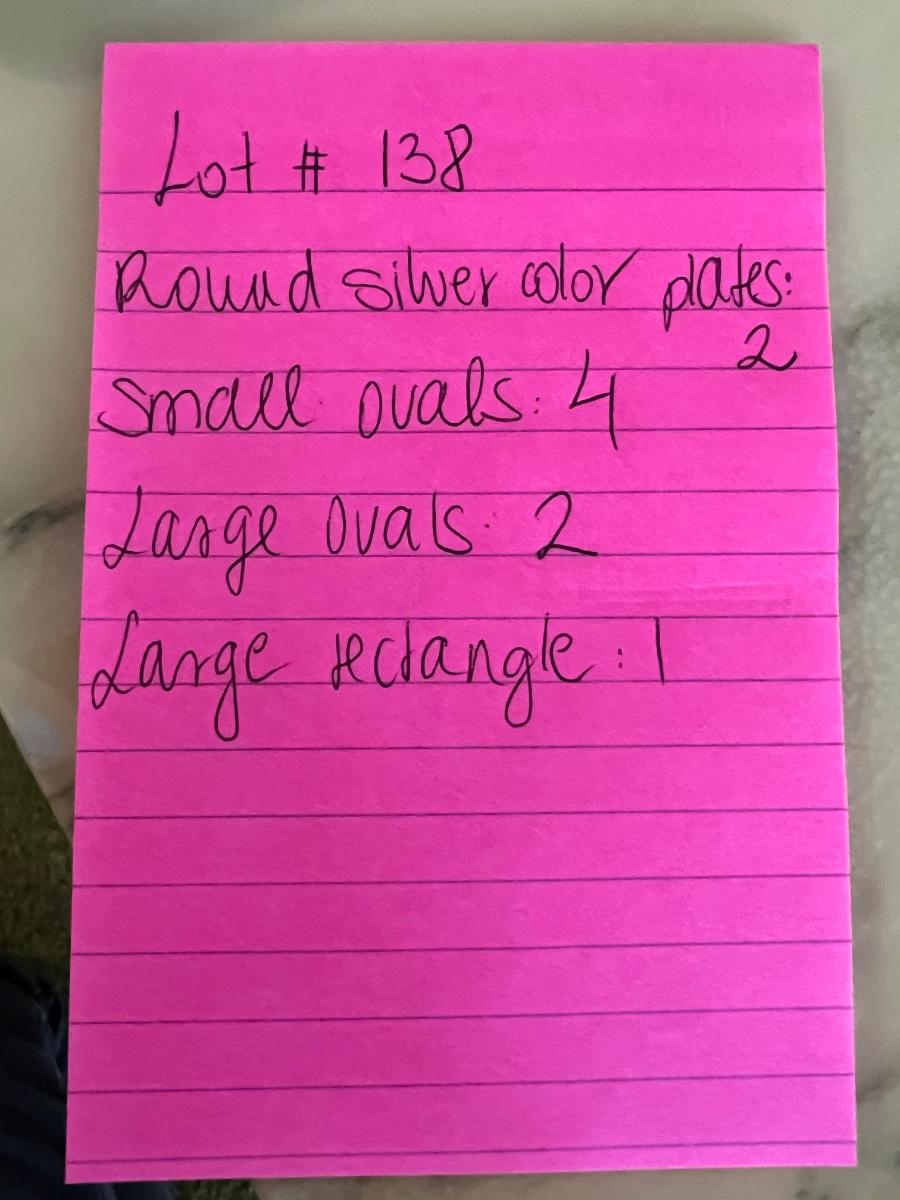 Lot # 138
Round silver color plates:
2
Small ovals: 4
Large ovals: 2
Large rectangle: 1